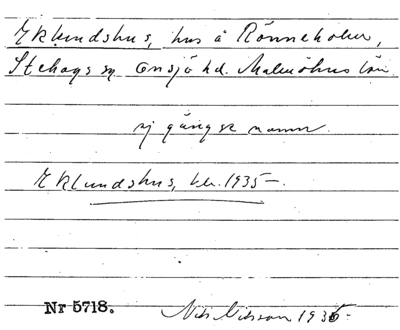 Eklundshus, hus å Rönneholm,
Stehags sn Onsjö hd. Malmöhus län.
ej gängse namn.
Eklundshus, kl. 1935-.
Nr 5718.
Nils Nilsson 1935-